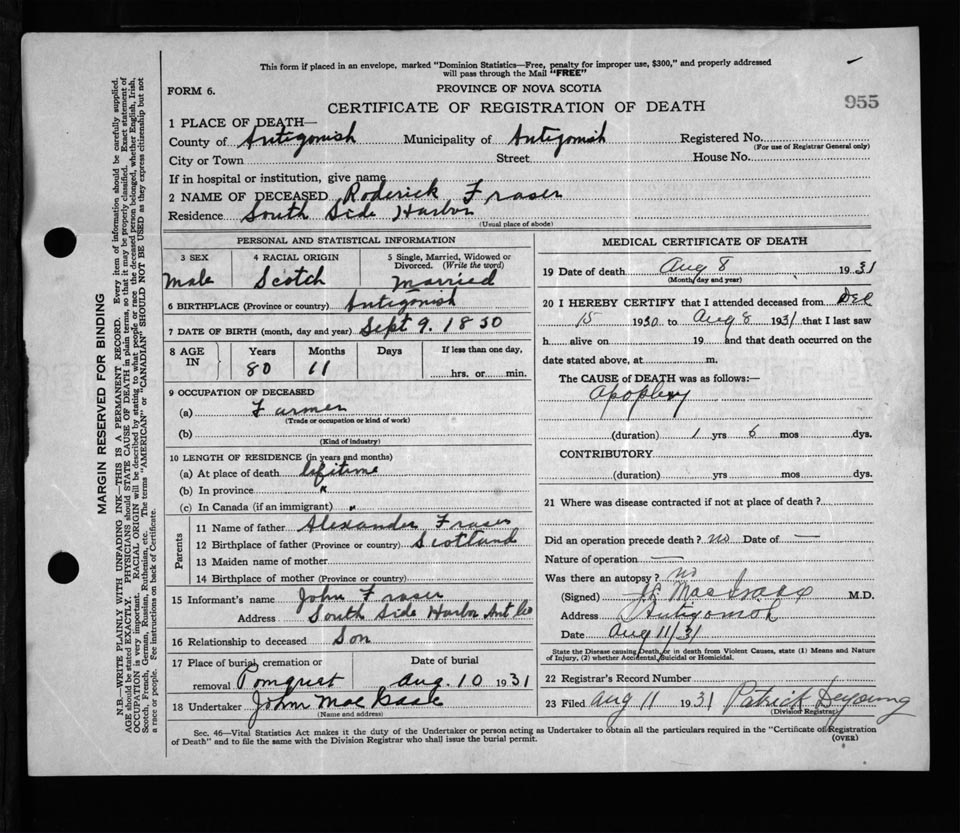 This form if placed in an envelope, marked "Dominion Statistics—Free, penalty for improper use, $300," and properly addressed
will pass through the Mail "FREE"
FORM 6.
PROVINCE OF NOVA SCOTIA
955
CERTIFICATE OF REGISTRATION OF DEATH
1 PLACE OF DEATH—
County of Antigonish Municipality of Antigonish Registered No.
(For use of Registrar General only)
City or Town Street House No.
If in hospital or institution, give name
2 NAME OF DECEASED Roderick Fraser
Residence South Side Harbor
(Usual place of abode)
PERSONAL AND STATISTICAL INFORMATION
3 SEX 4 RACIAL ORIGIN 5 Single, Married, Widowed or
Divorced. (Write the word)
Male Scotch Married
6 BIRTHPLACE (Province or country) Antigonish
7 DATE OF BIRTH (month, day and year) Sept 9. 1850
8 AGE IN Years Months Days If less than one day,
80 11 hrs. or min.
9 OCCUPATION OF DECEASED
(a) Farmer
(Trade or occupation or kind of work)
(b)
(Kind of industry)
10 LENGTH OF RESIDENCE (in years and months)
(a) At place of death lifetime
(b) In province "
(c) In Canada (if an immigrant) "
Parents
11 Name of father Alexander Fraser
12 Birthplace of father (Province or country) Scotland
13 Maiden name of mother
14 Birthplace of mother (Province or country)
15 Informant's name John Fraser
Address South Side Harbor Ant Co
16 Relationship to deceased Son
17 Place of burial, cremation or Date of burial
removal Pomquet Aug. 10 1931
18 Undertaker John MacIsaac
(Name and address)
MEDICAL CERTIFICATE OF DEATH
19 Date of death Aug 8 1931
(Month, day and year)
20 I HEREBY CERTIFY that I attended deceased from Dec
15 1930 to Aug 8 1931 that I last saw
h alive on 19 and that death occurred on the
date stated above, at m.
The CAUSE of DEATH was as follows:—
Apoplexy
(duration) 1 yrs 6 mos dys.
CONTRIBUTORY
(duration) yrs mos dys.
21 Where was disease contracted if not at place of death?
Did an operation precede death? no Date of —
Nature of operation —
Was there an autopsy? no
(Signed) MacIsaac M.D.
Address Antigonish
Date Aug 11/31
State the Disease causing Death, or in death from Violent Causes, state (1) Means and Nature
of Injury, (2) whether Accidental, Suicidal or Homicidal.
22 Registrar's Record Number
23 Filed Aug 11 1931 Patrick DeYoung
(Division Registrar)
Sec. 46—Vital Statistics Act makes it the duty of the Undertaker or person acting as Undertaker to obtain all the particulars required in the "Certificate of Registration
of Death" and to file the same with the Division Registrar who shall issue the burial permit.
(OVER)
MARGIN RESERVED FOR BINDING
N.B.—WRITE PLAINLY WITH UNFADING INK—THIS IS A PERMANENT RECORD. Every item of information should be carefully supplied.
AGE should be stated EXACTLY. PHYSICIANS should STATE CAUSE OF DEATH in plain terms, so that it may be properly classified. Exact statement of
OCCUPATION is very important. RACIAL ORIGIN will be described by stating to what people or race the deceased person belonged, whether English, Irish,
Scotch, French, German, Russian, Ruthenian, etc. The terms "AMERICAN" or "CANADIAN" SHOULD NOT BE USED as they express citizenship but not
a race or people. See instructions on back of Certificate.